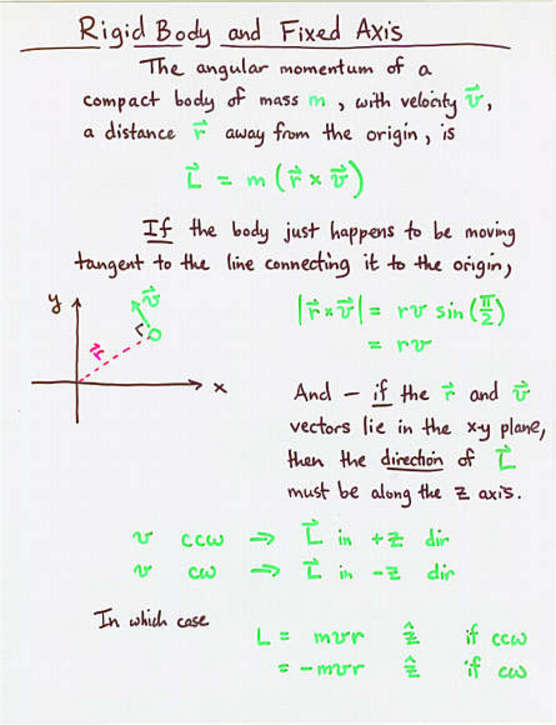 Rigid Body and Fixed Axis
The angular momentum of a
compact body of mass m, with velocity v⃗,
a distance r⃗ away from the origin, is
L⃗ = m (r⃗ × v⃗)
If the body just happens to be moving
tangent to the line connecting it to the origin,
y v⃗
|r⃗ × v⃗| = rv sin (π/2)
r⃗
= rv
x
And - if the r⃗ and v⃗
vectors lie in the x-y plane,
then the direction of L⃗
must be along the z axis.
v ccw ⇒ L⃗ in +z dir
v cw ⇒ L⃗ in -z dir
In which case
L = mvr ẑ if ccw
= -mvr ẑ if cw